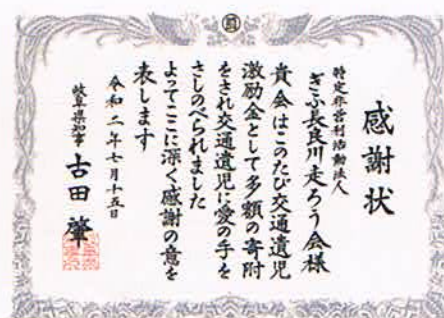 感謝状
特定非営利活動法人
ぎふ長良川走ろう会様
貴会はこのたび交通遺児
激励金として多額の寄附
をされ交通遺児に愛の手を
さしのべられました
よってここに深く感謝の意を
表します
令和二年七月十五日
岐阜県知事 古田 肇